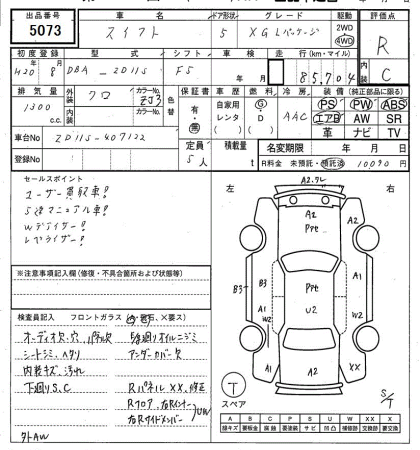 出品番号 車名 ドア形状 グレード 駆動 評価点
5073 スイフト 5 XG Lパッケージ 2WD 4WD R
初度登録 型式 シフト 車検 走行(km・マイル) 内装
H20年8月 DBA-ZD11S F5 年 月 85,704 C
排気量 外装 クロ カラーNo. ZJ3 色替 保証書 車歴 燃料 冷房 装備(純正部品に限る)
1300 c.c. 内装 カラーNo. 有・無 自家用 レンタ G D AAC PS PW ABS
エアB AW SR
革 ナビ TV
車台No ZD11S-407122 定員 積載量 名変期限 年 月 日
登録No 5人 t R料金 未預託・預託済 10090円
セールスポイント
ユーザー買取車!
5速マニュアル車!
Wデフイザー!
レベライザー!
左 右
A2
A2
Pte
Pte
U2
B3 B3 A1 W2
A1
W2
A1 A2 XX
※注意事項記入欄(修復・不具合箇所および状態等)
検査員記入 フロントガラス
オーディオ欠、穴
シートシミ、ヘタリ アンダーカバー欠
内装キズ、汚れ
下廻りS、C Rパネル XX、修正
Rフロア、右Rインナー
右Rサイドメンバー UW
外AW
T
スペア
S/T
A B C P S U W X XX
線キズ 要鈑金 腐蝕 要塗装 サビ 凹凸 補修跡 交換跡 要交換